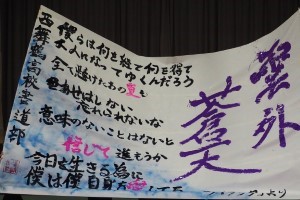 外
蒼天
僕らは何を経て何を得て
大人になってゆくんだろう
全て懸けたあの夏も
色褪せはしない
忘れられないな
意味のないことはないと
信じて進もうか
今日を生きる為に
僕は僕自身を
より
西舞鶴高校書道部